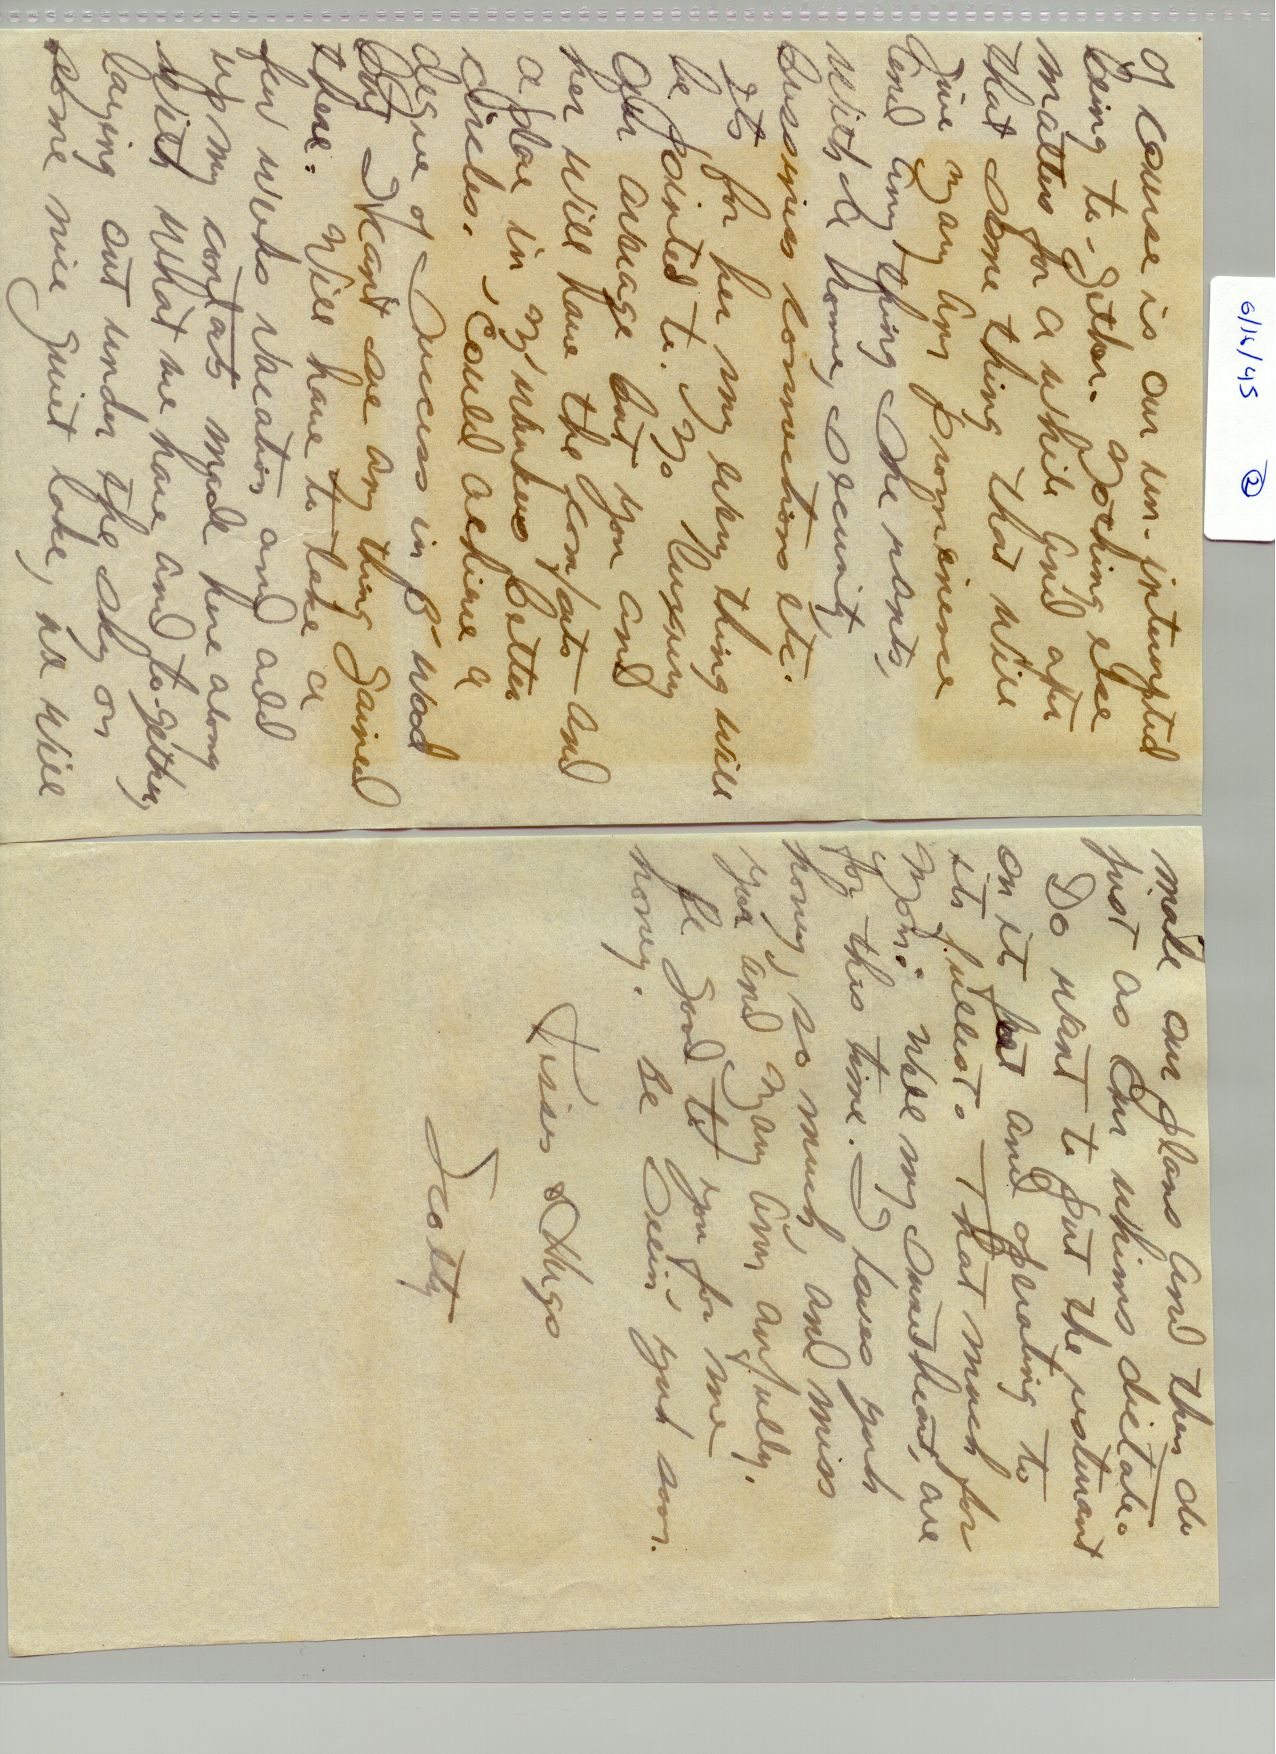 6/16/45 ②
of course is our un-interupted
being to-gether. Nothing else
matters for a while and after
that some thing that will
give Mary Ann prominence
and any thing she wants,
with a home, security,
bussiness connections etc.
Its for her my every thing will
be pointed to. No luxury
our average but you and
her will have the comforts and
a place in Yonkers better
circles. Could achieve a
degree of success in B'wood
but I can't see any thing gained
there. Will have to take a
few weeks vacation and add
up my contacts made here along
with what we have and to-gether,
laying out under the sky on
some nice quiet lake, we will
make our plans and then do
just as our whims dictate.
Do want to put the resturant
on its feet and operating to
its fullest. That much for
Mom. Well my sweetheart, are
for this time. I loves yuh
honey, so much, and miss
you and Mary Ann awfully.
Be good to you for me
honey. Be seein' yuh soon.
Kisses & Hugs
Scotty